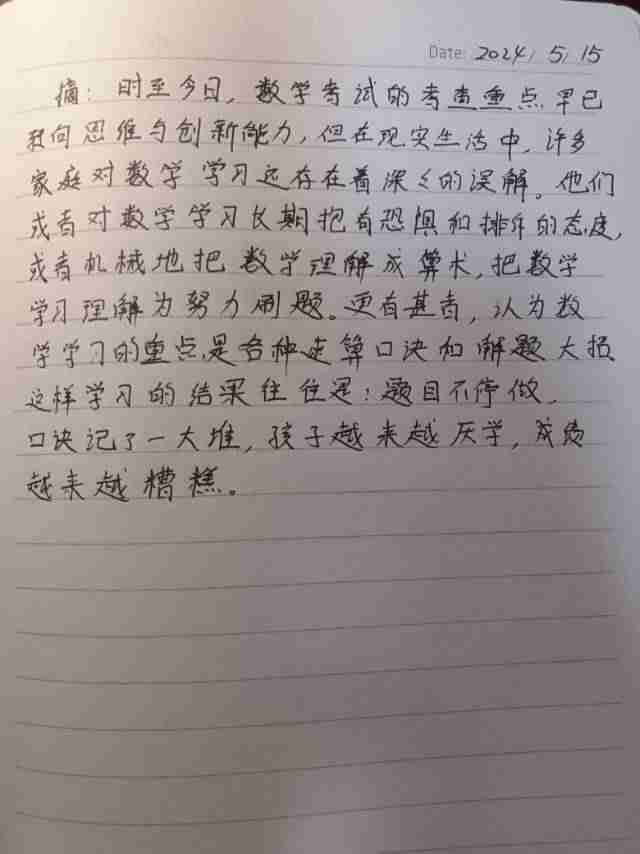 Date: 2024 / 5 / 15
摘：时至今日，数学考试的考查重点早已
转向思维与创新能力，但在现实生活中，许多
家庭对数学学习还存在着深深的误解。他们
或者对数学学习长期抱有恐惧和排斥的态度，
或者机械地把数学理解成算术，把数学
学习理解为努力刷题。更有甚者，认为数
学学习的重点是各种速算口诀和解题大招
这样学习的结果往往是：题目不停做，
口诀记了一大堆，孩子越来越厌学，成绩
越来越糟糕。